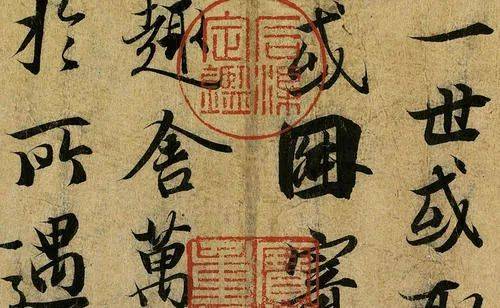 一世或取
或因寄
趣舍萬
於所遇
石渠
定鑑
寶
重